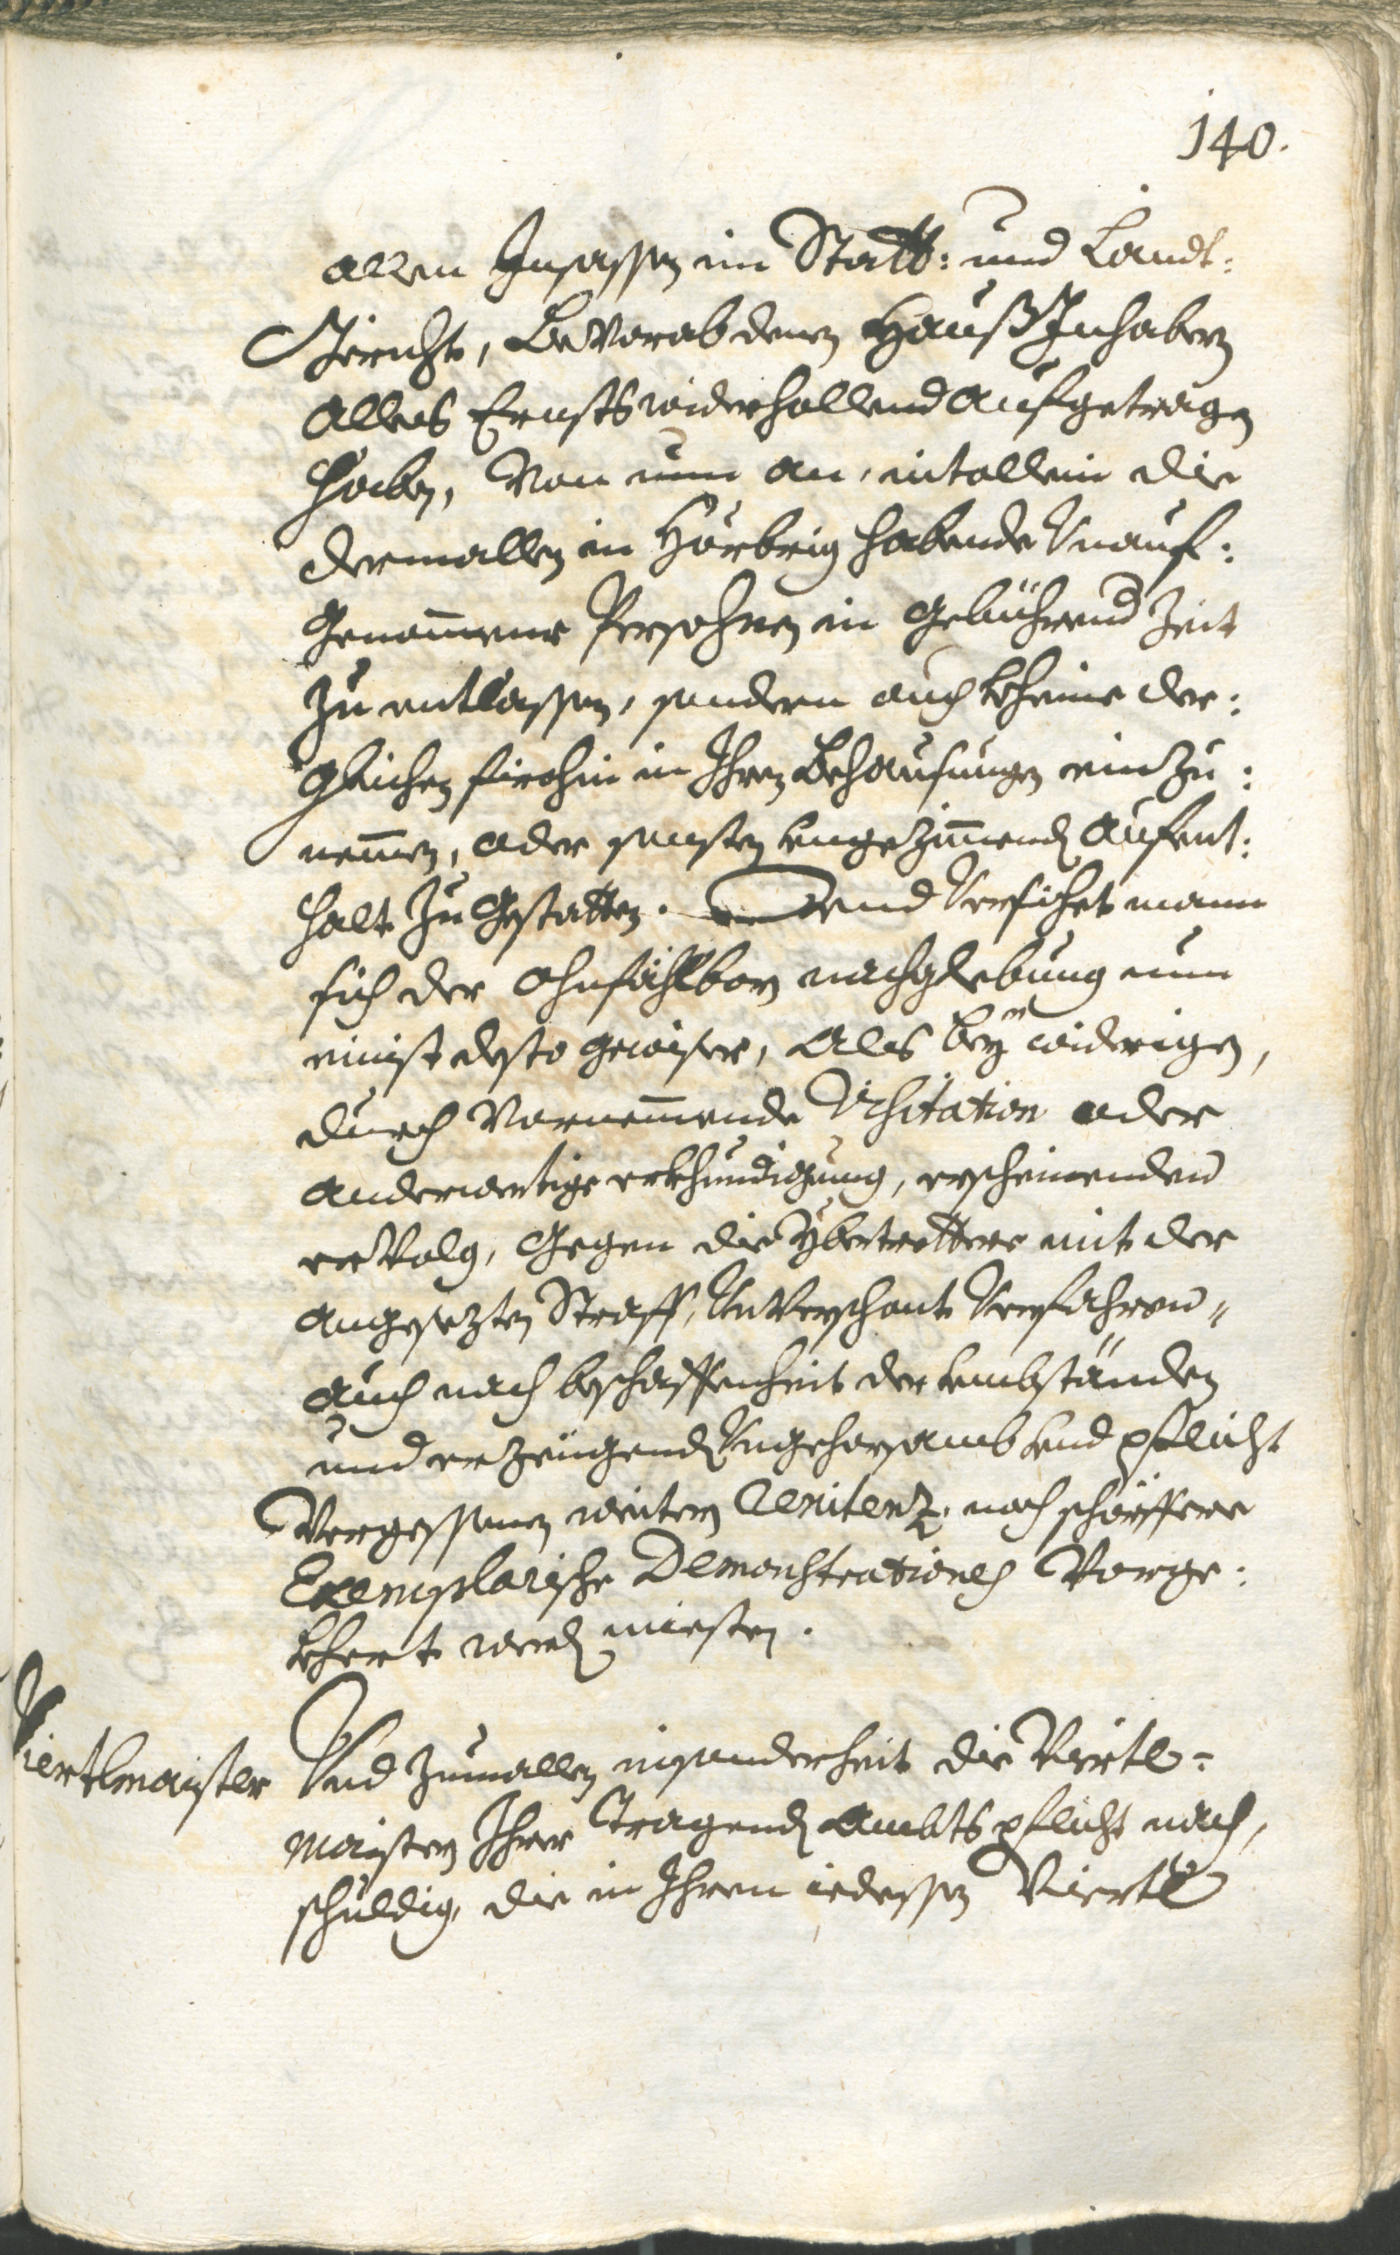 140.
allen Jnsassen im Statt: und Landt:
Gericht, bevorab denen Hauß Jnhabern
Alles Ernsts widerhollend aufgetragen
haben, Von nun an, nit allein die
dermallen in Hörbrig habende Unauf:
Genom̄ene Persohnen in gebührend Zeit
Zu entlassen, sondern auch kheine der:
gleichen firohin in Jhren Behausungen ein Zu:
nem̄en, oder sonsten ungezim̄end Aufent:
halt Zu Gestatten. Und versichet mann
sich der ohnfählbarn nachglebung num
einist desto gewiser, als bey widerigen,
durch Vornem̄ende Visitation oder
anderwertige erkhundigung, erscheinenden
ervolg, Gegen die Ybertrettere mit der
angesezten Straff, Unverschont Verfahren,
auch nach beschaffenheit der umbständen
und erzeigend Ungehorsamb und pflicht
Vergessenen weitern Renitenz, noch schörffere
Exemplarische Demonstrationes Vorge:
khert werd miesten.
Viertlmaister
Und zumallen insonderheit die Viertl=
maistern Jhrer Tragend Ambts pflicht nach,
schuldig, die in Jhren iedessen Viertl